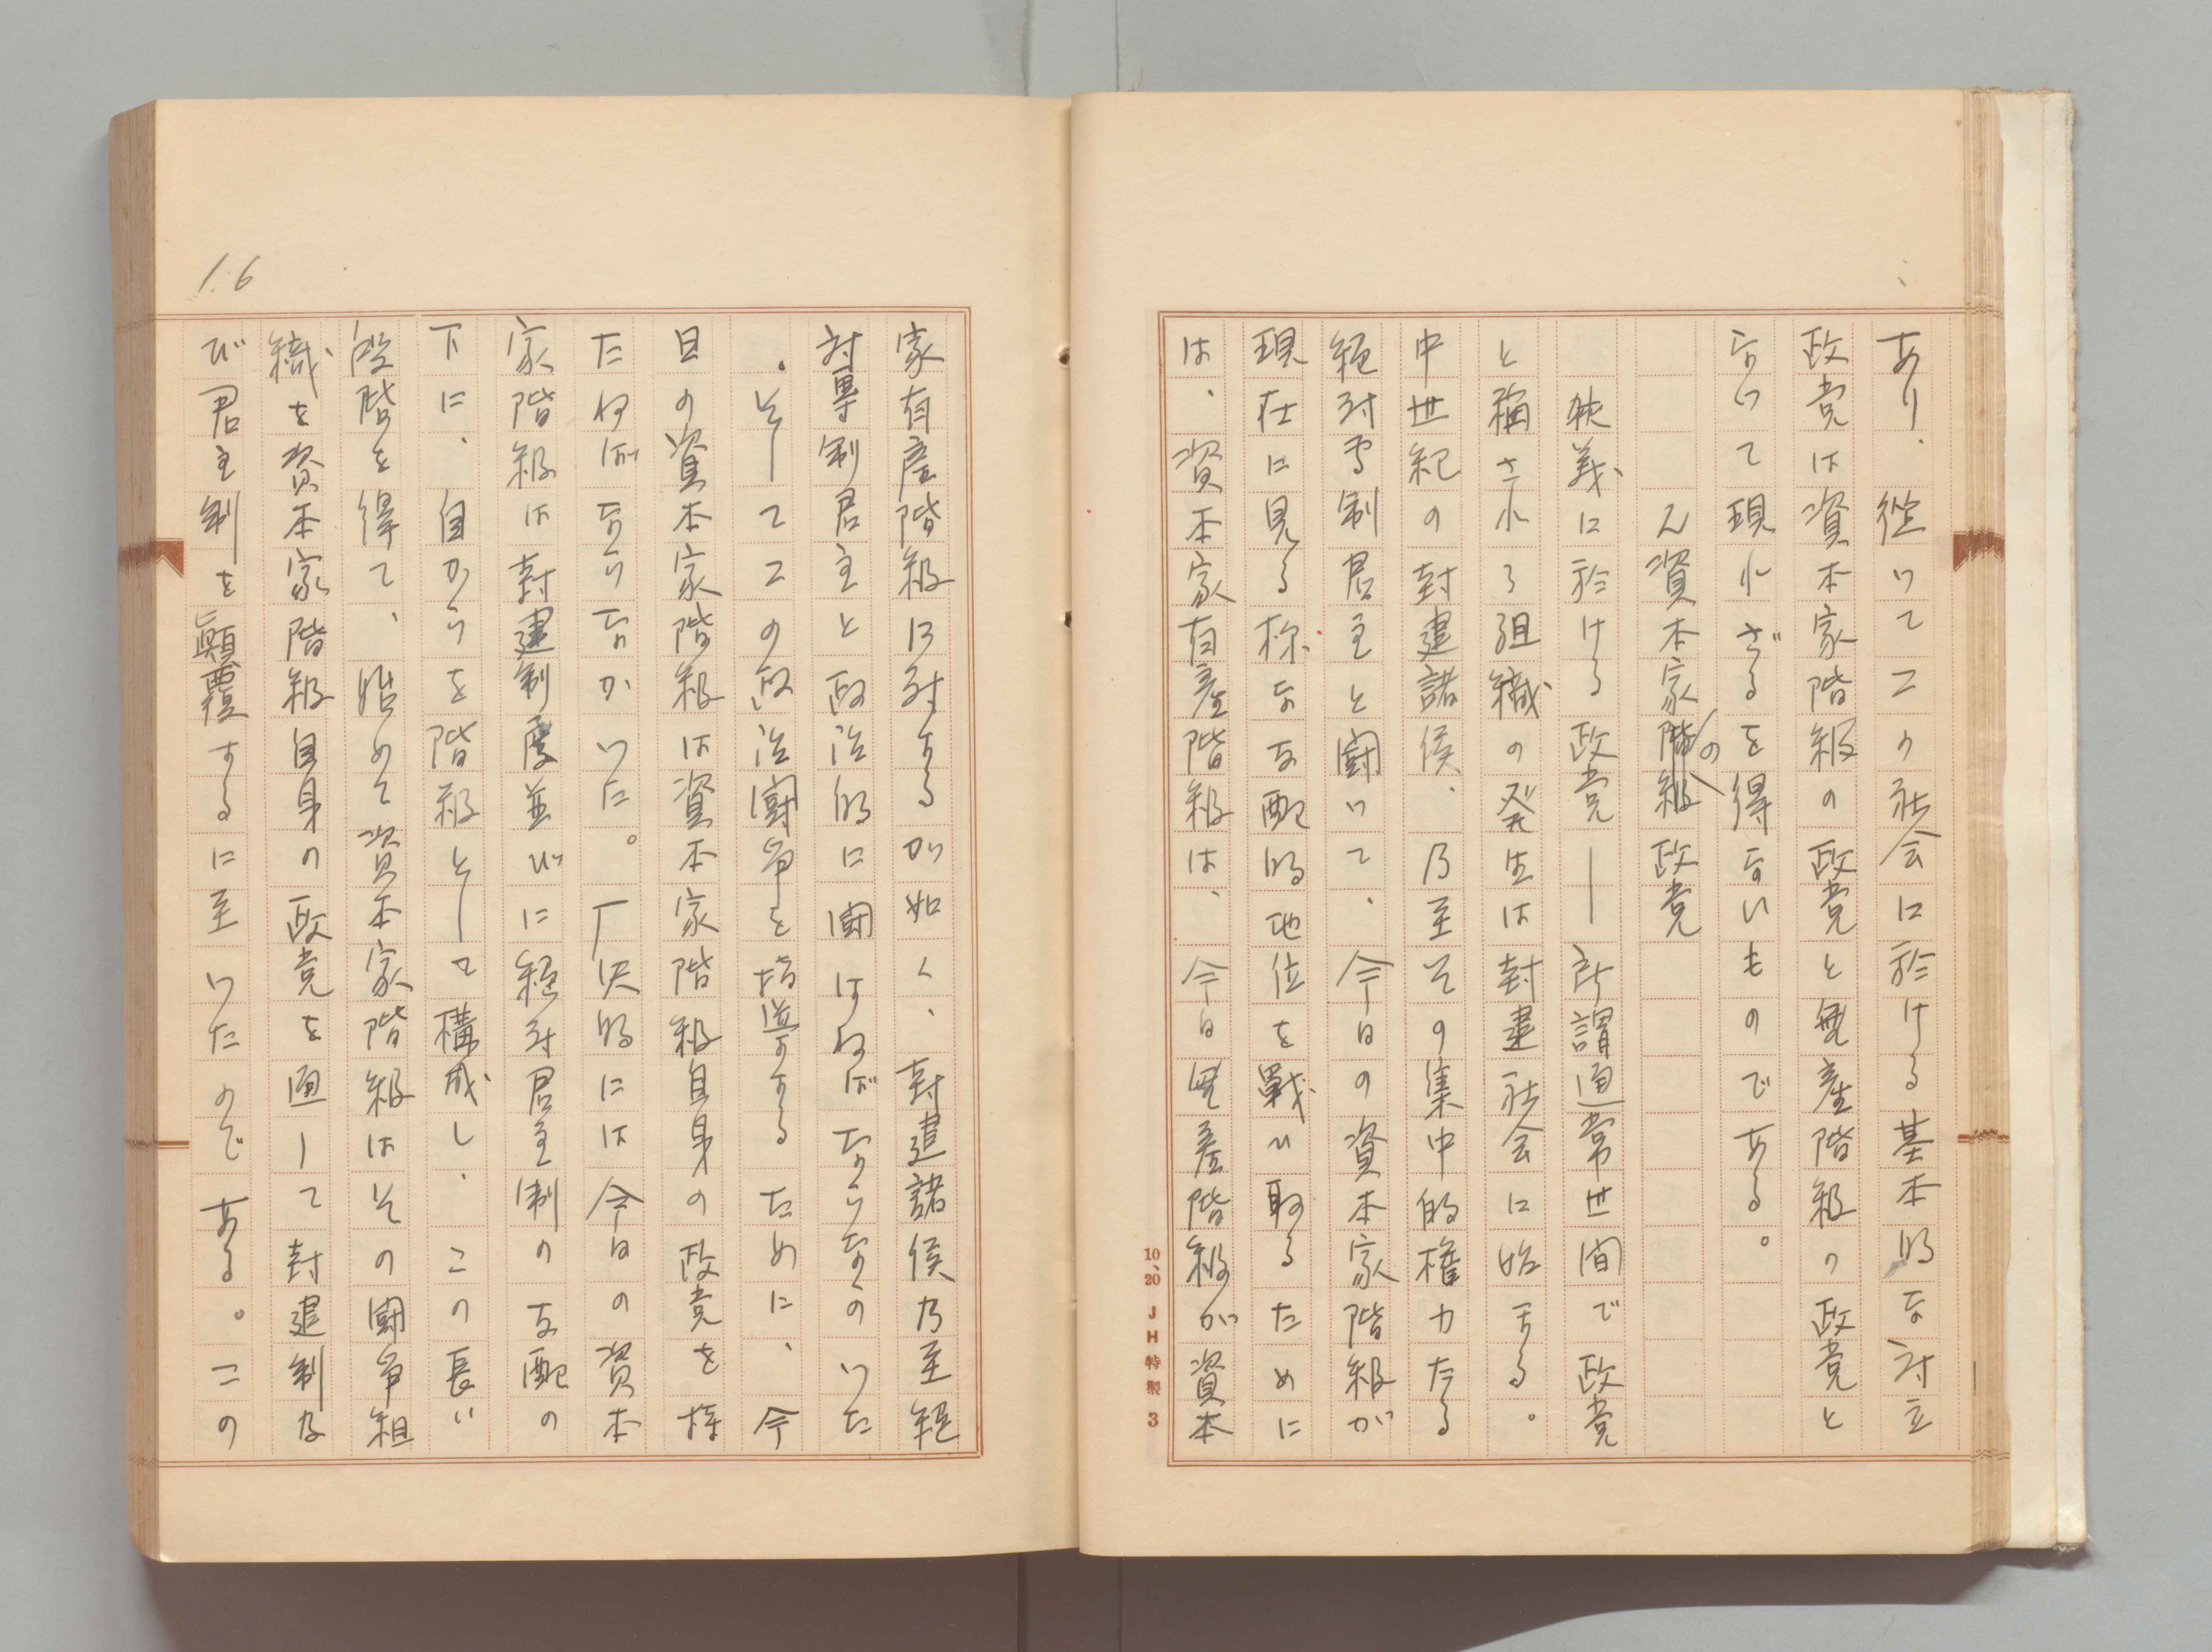 あり、従ってこの社会に於ける基本的な対立
政党は資本家階級の政党と無産階級の政党と
なって現れざるを得ないものである。
2 資本家階級の政党
狭義に於ける政党――所謂通常世間で政党
と稱される組織の発生は封建社会に始まる。
中世紀の封建諸侯、乃至その集中的権力たる
絶対専制君主と闘って、今日の資本家階級が
現在に見る様な支配的地位を戦ひ取るために
は、資本家有産階級は、今日無産階級が資本
10、20 JH特製 3
家有産階級に対するが如く、封建諸侯乃至絶
対専制君主と政治的に闘はねばならなかった
。そしてこの政治闘争を指導するために、今
日の資本家階級は資本家階級自身の政党を持
たねばならなかった。厂史的には今日の資本
家階級は封建制度並びに絶対君主制の支配の
下に、自からを階級として構成し、この長い
段階を得て、始めて資本家階級はその闘争組
織を資本家階級自身の政党を通して封建制及
び君主制を顚覆するに至ったのである。この
16